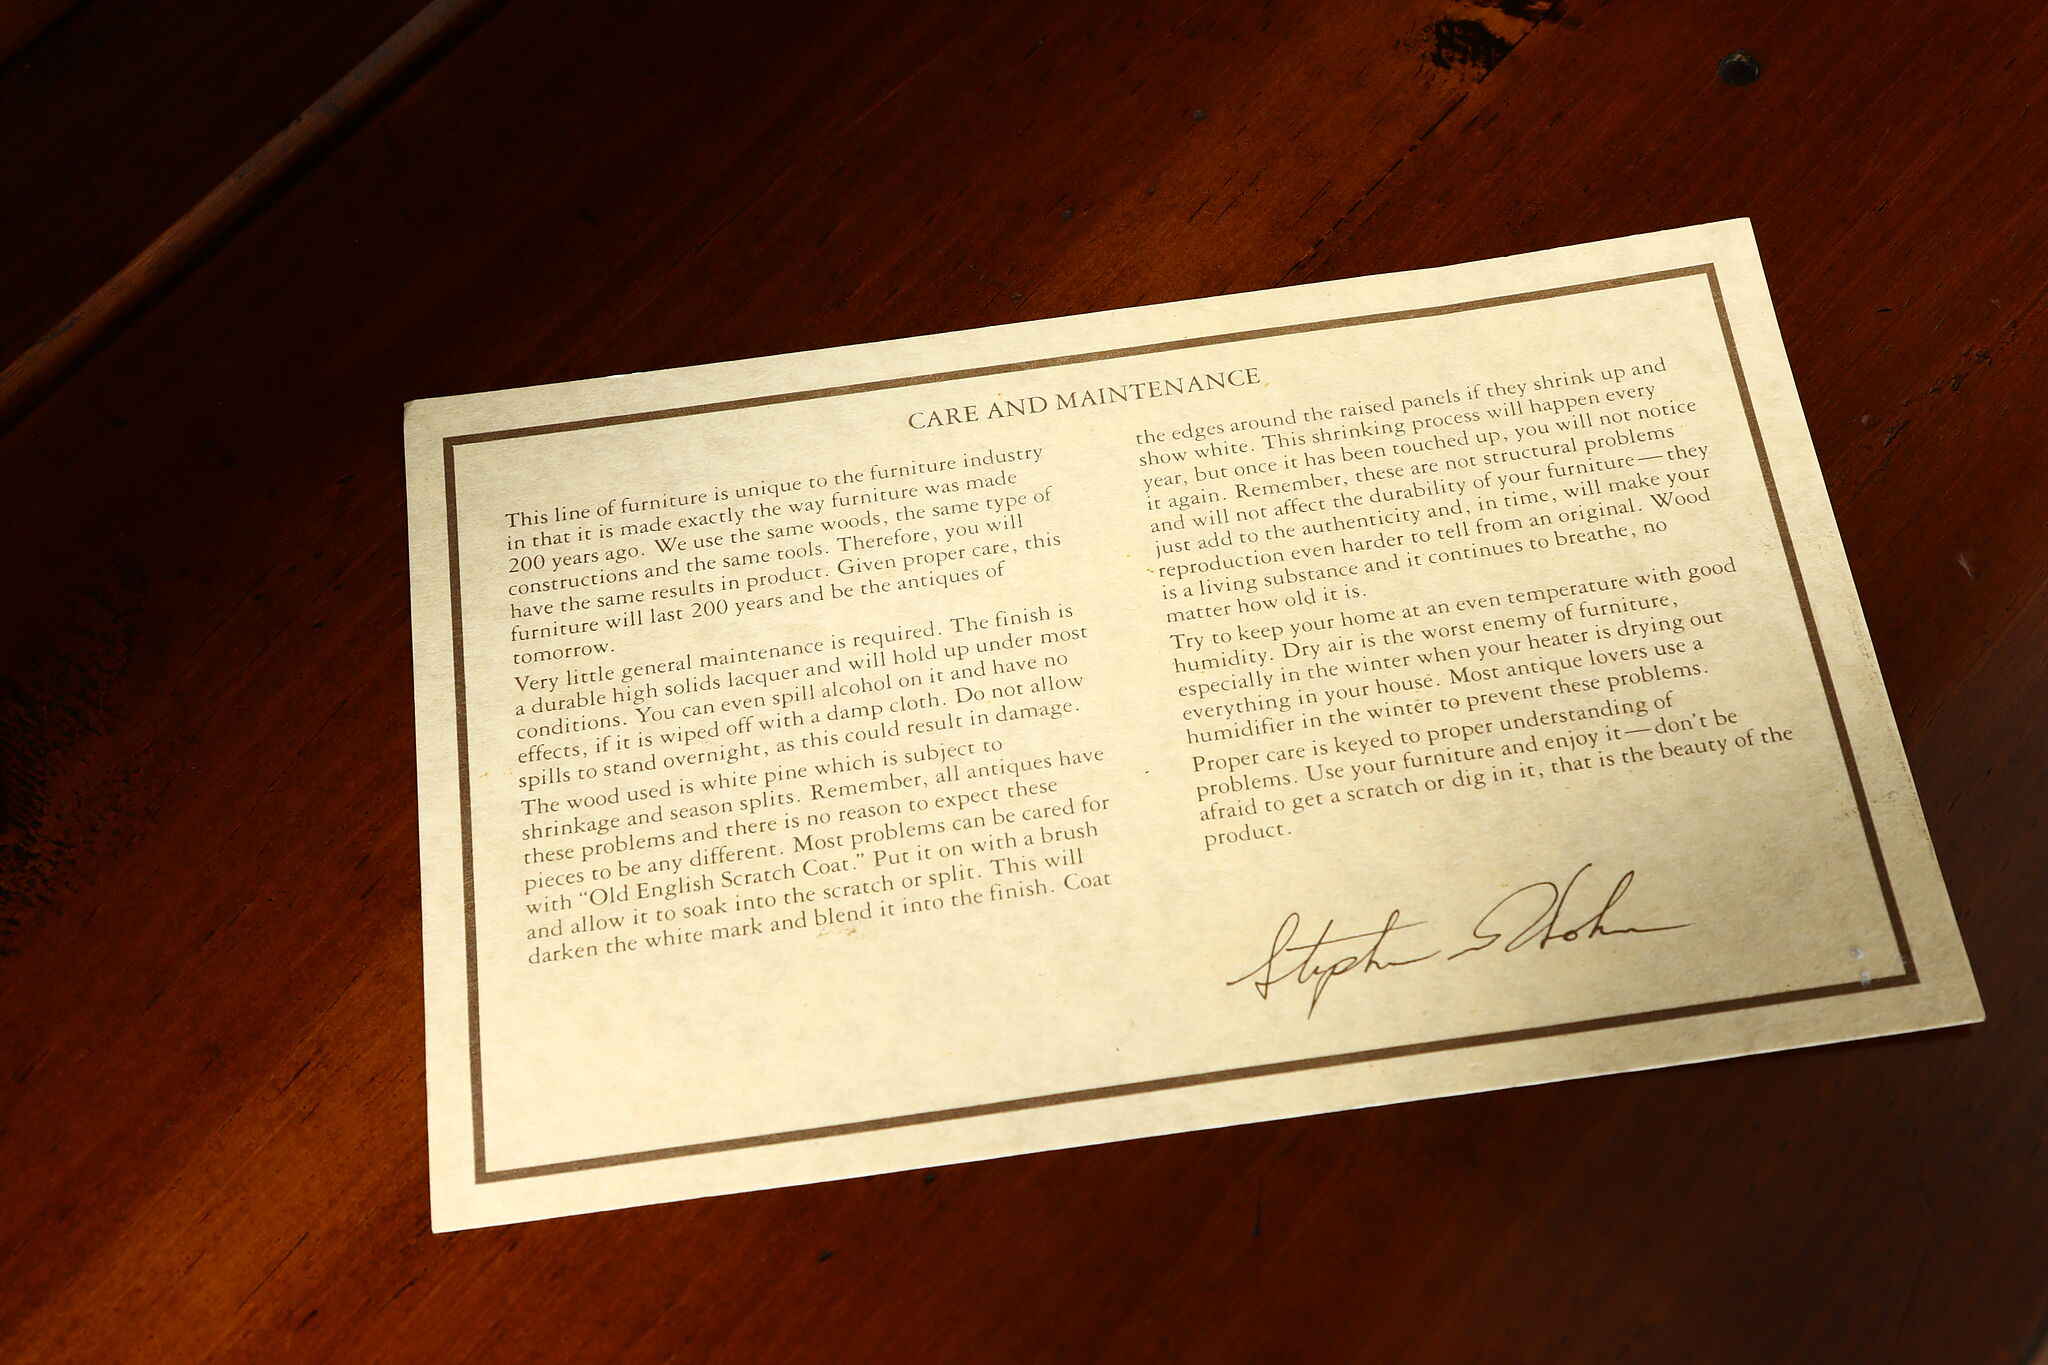 CARE AND MAINTENANCE
This line of furniture is unique to the furniture industry
in that it is made exactly the way furniture was made
200 years ago. We use the same woods, the same type of
constructions and the same tools. Therefore, you will
have the same results in product. Given proper care, this
furniture will last 200 years and be the antiques of
tomorrow.
Very little general maintenance is required. The finish is
a durable high solids lacquer and will hold up under most
conditions. You can even spill alcohol on it and have no
effects, if it is wiped off with a damp cloth. Do not allow
spills to stand overnight, as this could result in damage.
The wood used is white pine which is subject to
shrinkage and season splits. Remember, all antiques have
these problems and there is no reason to expect these
pieces to be any different. Most problems can be cared for
with “Old English Scratch Coat.” Put it on with a brush
and allow it to soak into the scratch or split. This will
darken the white mark and blend it into the finish. Coat
the edges around the raised panels if they shrink up and
show white. This shrinking process will happen every
year, but once it has been touched up, you will not notice
it again. Remember, these are not structural problems
and will not affect the durability of your furniture—they
just add to the authenticity and, in time, will make your
reproduction even harder to tell from an original. Wood
is a living substance and it continues to breathe, no
matter how old it is.
Try to keep your home at an even temperature with good
humidity. Dry air is the worst enemy of furniture,
especially in the winter when your heater is drying out
everything in your house. Most antique lovers use a
humidifier in the winter to prevent these problems.
Proper care is keyed to proper understanding of
problems. Use your furniture and enjoy it—don't be
afraid to get a scratch or dig in it, that is the beauty of the
product.
Stephen